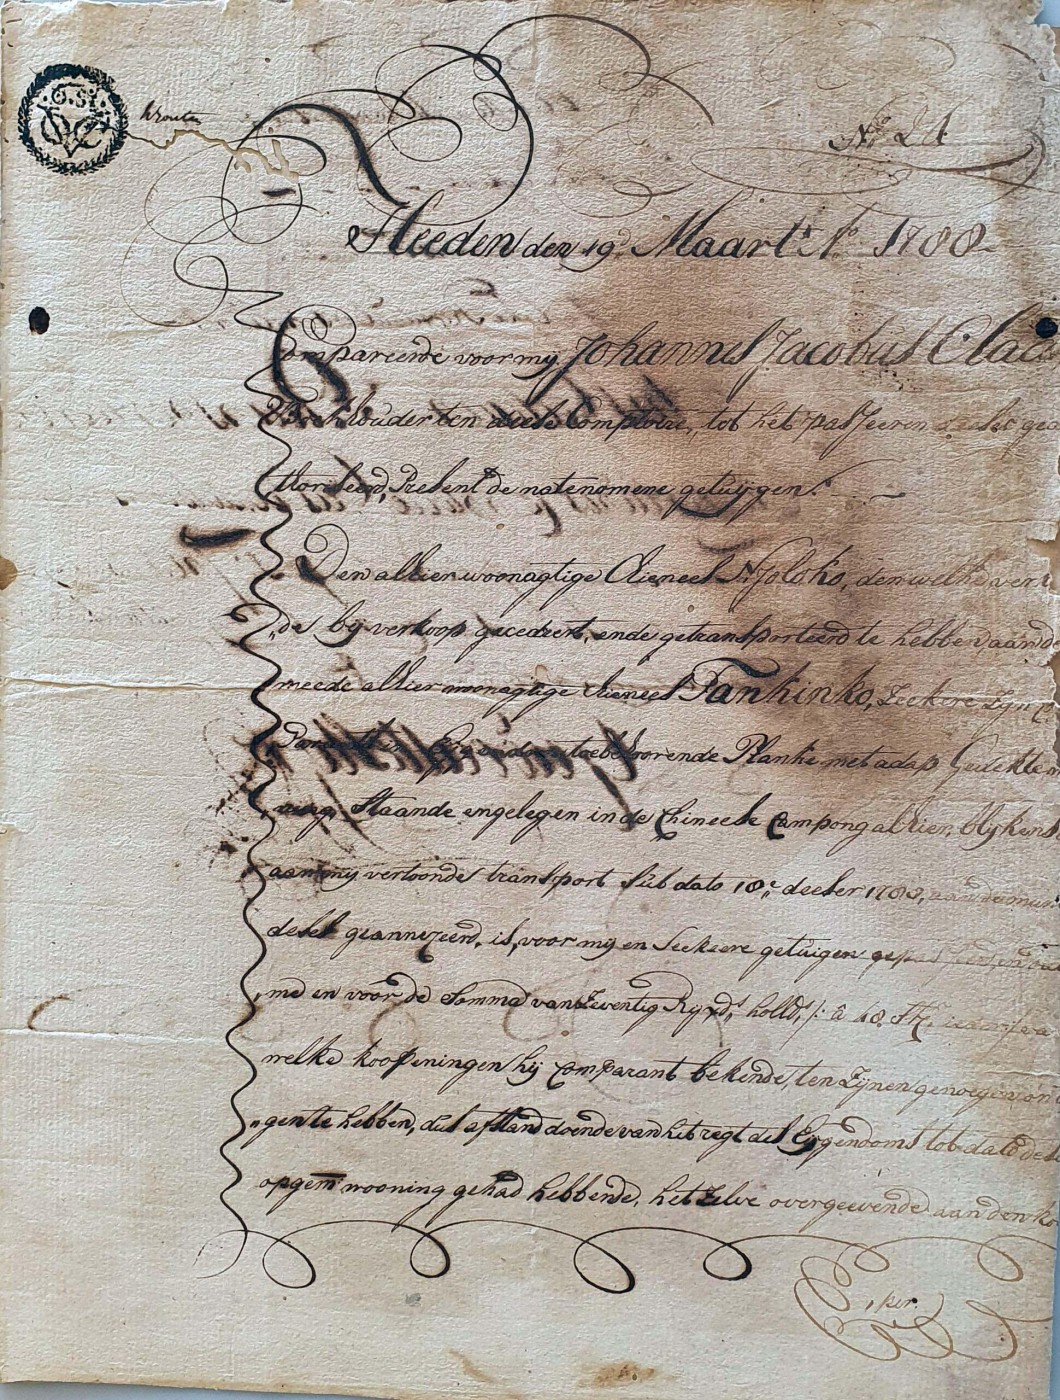 6. St.
VOC
No. 24
Heeden den 19e. Maart Ao. 1788
Compareerde voor my Johannis Jacobus Claas
Boekhouder ten deese Comptoire, tot het passeeren deeses geau
thoriseerd, Present de natenomene getuygen.
Den alhier woonagtige Chineesch N: Joloko, den welke ver
„de by verkoop gecedeert, ende getransporteerd te hebben aan de
meede alhier woonagtige Chineesch Tankinko, zeekere zyn
toebehoorende Planke met adap Gedekte
staande en gelegen in de Chineese Campong alhier, blykens
aan my vertoonde transport sub dato 18e. decber 178
deses geannexeerd, is, voor my en seekere getuigen gepasseerd,
me en voor de Somma van Zeventig Ryxds. hollds. /: â 48. St:
welke kooppeningen hy Comparant bekende, ten zynen genoegen ont
„gen te hebben, dus afstand doende van het regt des Eygendoms tot dato deses
opgemt wooning gehad hebbende, het zelve overgeevende aan den ko
, per